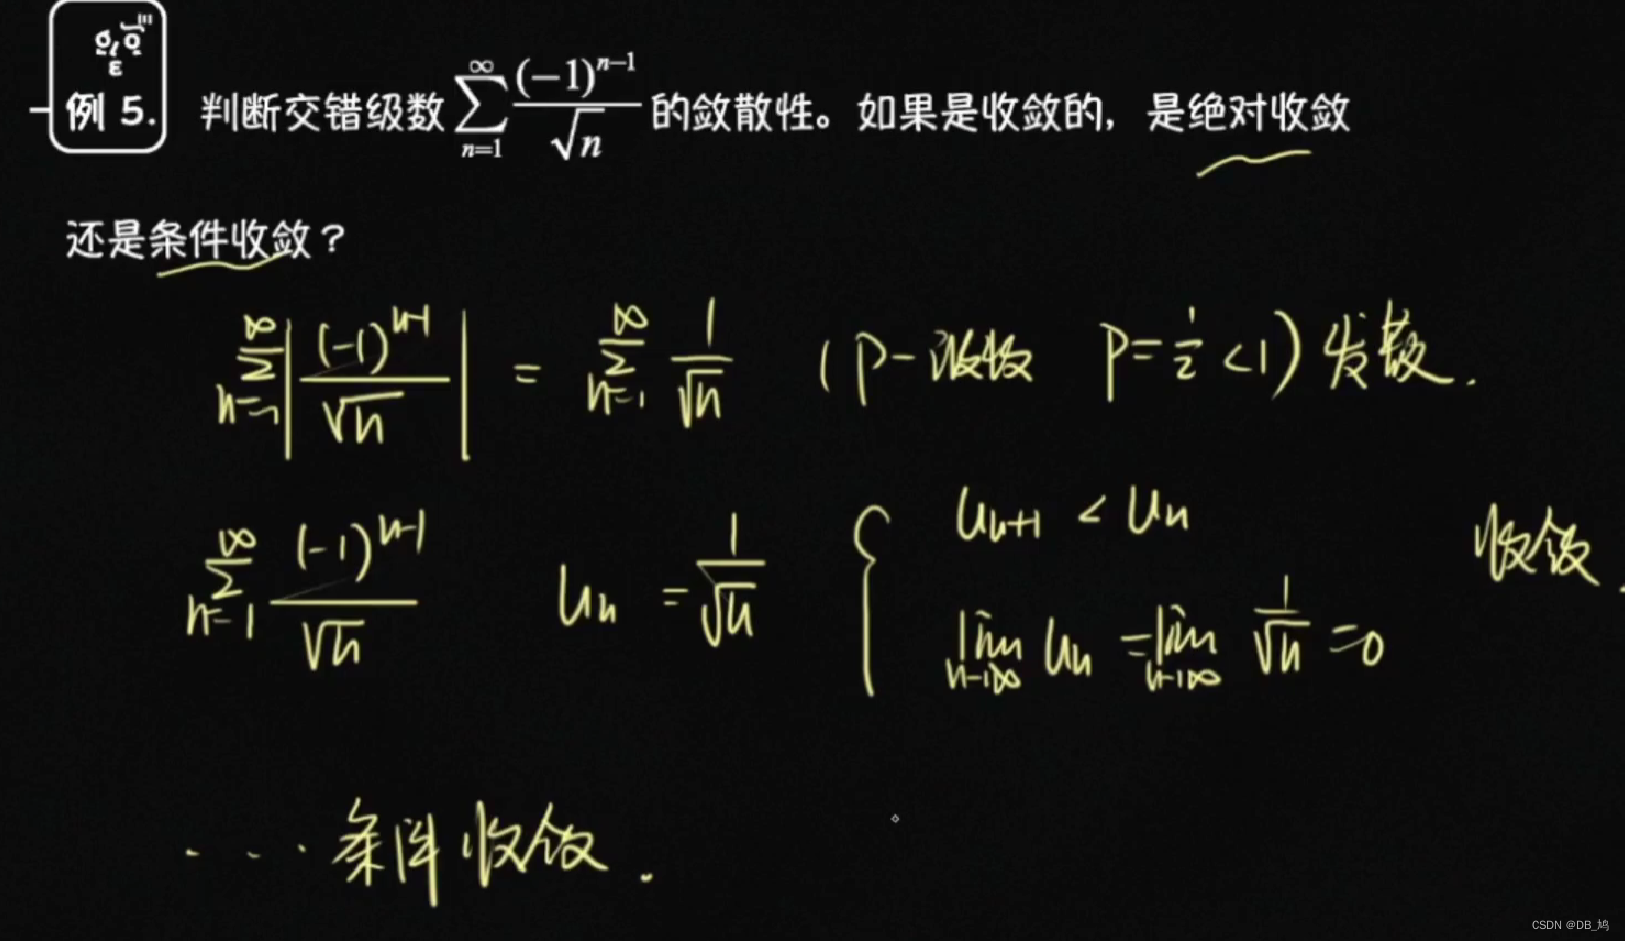 例 5. 判断交错级数 \sum_{n=1}^{\infty} \frac{(-1)^{n-1}}{\sqrt{n}} 的敛散性。如果是收敛的，是绝对收敛
还是条件收敛？
\sum_{n=1}^{\infty} \left| \frac{(-1)^{n-1}}{\sqrt{n}} \right| = \sum_{n=1}^{\infty} \frac{1}{\sqrt{n}} (P-级数 P=\frac{1}{2}<1) 发散.
\sum_{n=1}^{\infty} \frac{(-1)^{n-1}}{\sqrt{n}} u_n = \frac{1}{\sqrt{n}} { u_{n+1} < u_n 收敛.
\lim_{n \to \infty} u_n = \lim_{n \to \infty} \frac{1}{\sqrt{n}} = 0
... 条件收敛.
CSDN @DB_鸠